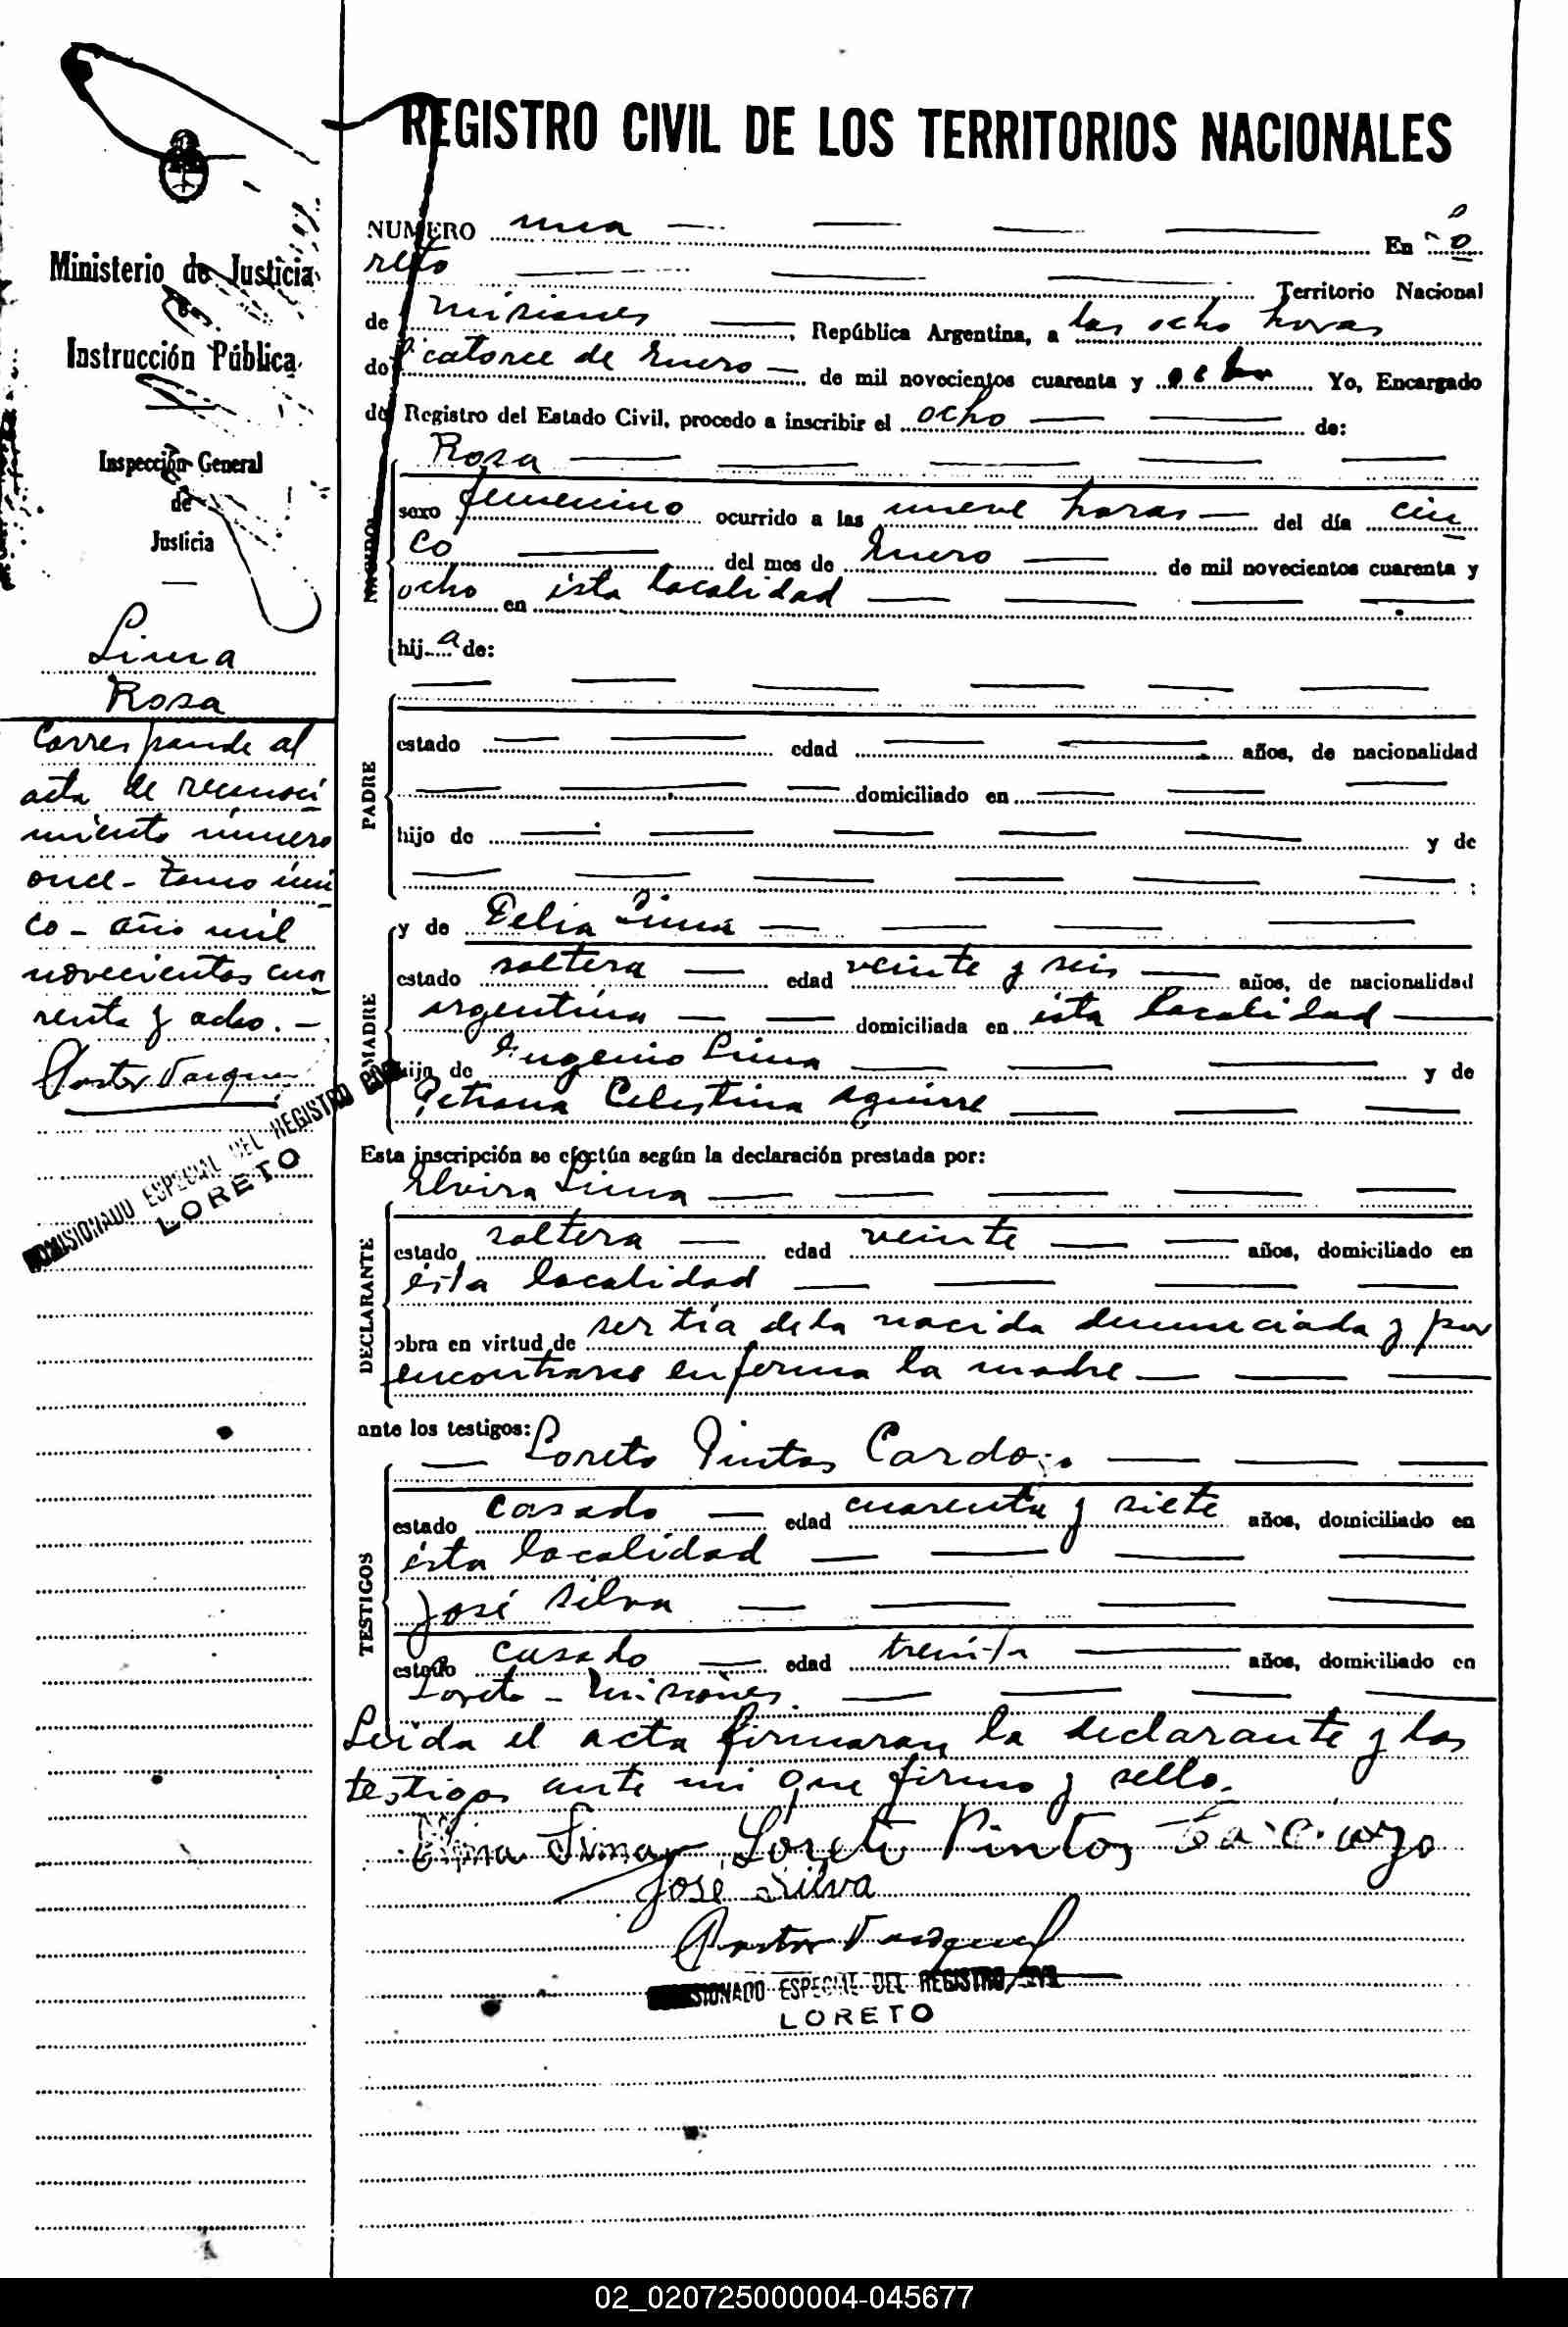 REGISTRO CIVIL DE LOS TERRITORIOS NACIONALES
Ministerio de Justicia
Instrucción Pública
Inspección General
de
Justicia
Lima
Rosa
Corresponde al
acta de reconoci
miento número
once - tomo úni
co - año mil
novecientos cua
renta y ocho. -
Pastor Vasquez
COMISIONADO ESPECIAL DEL REGISTRO CIVIL
LORETO
NUMERO una En Lo
reto Territorio Nacional
de Misiones República Argentina, a las ocho horas
del catorce de Enero de mil novecientos cuarenta y ocho Yo, Encargado
del Registro del Estado Civil, procedo a inscribir el ocho de:
NACIDO
Rosa
sexo femenino ocurrido a las nueve horas del día cin
co del mes de Enero de mil novecientos cuarenta y
ocho en ésta localidad
hij a de:
PADRE
estado edad años, de nacionalidad
domiciliado en
hijo de y de
MADRE
y de Delia Lima
estado soltera edad veinte y seis años, de nacionalidad
argentina domiciliada en ésta localidad
hija de Eugenio Lima y de
Petrona Celestina Aguirre
Esta inscripción se efectúa según la declaración prestada por:
DECLARANTE
Elvira Lima
estado soltera edad veinte años, domiciliado en
ésta localidad
obra en virtud de ser tía de la nacida denunciada y por
encontrarse enferma la madre
ante los testigos:
TESTIGOS
Loreto Pintos Cardozo
estado casado edad cuarenta y siete años, domiciliado en
ésta localidad
José Silva
estado casado edad treinta años, domiciliado en
Loreto - Misiones
Leida el acta firmaran la declarante y los
testigos ante mi que firmo y sello.
Elvira Lima Loreto Pintos
José Silva
Pastor Vasquez
COMISIONADO ESPECIAL DEL REGISTRO CIVIL
LORETO
02_020725000004-045677